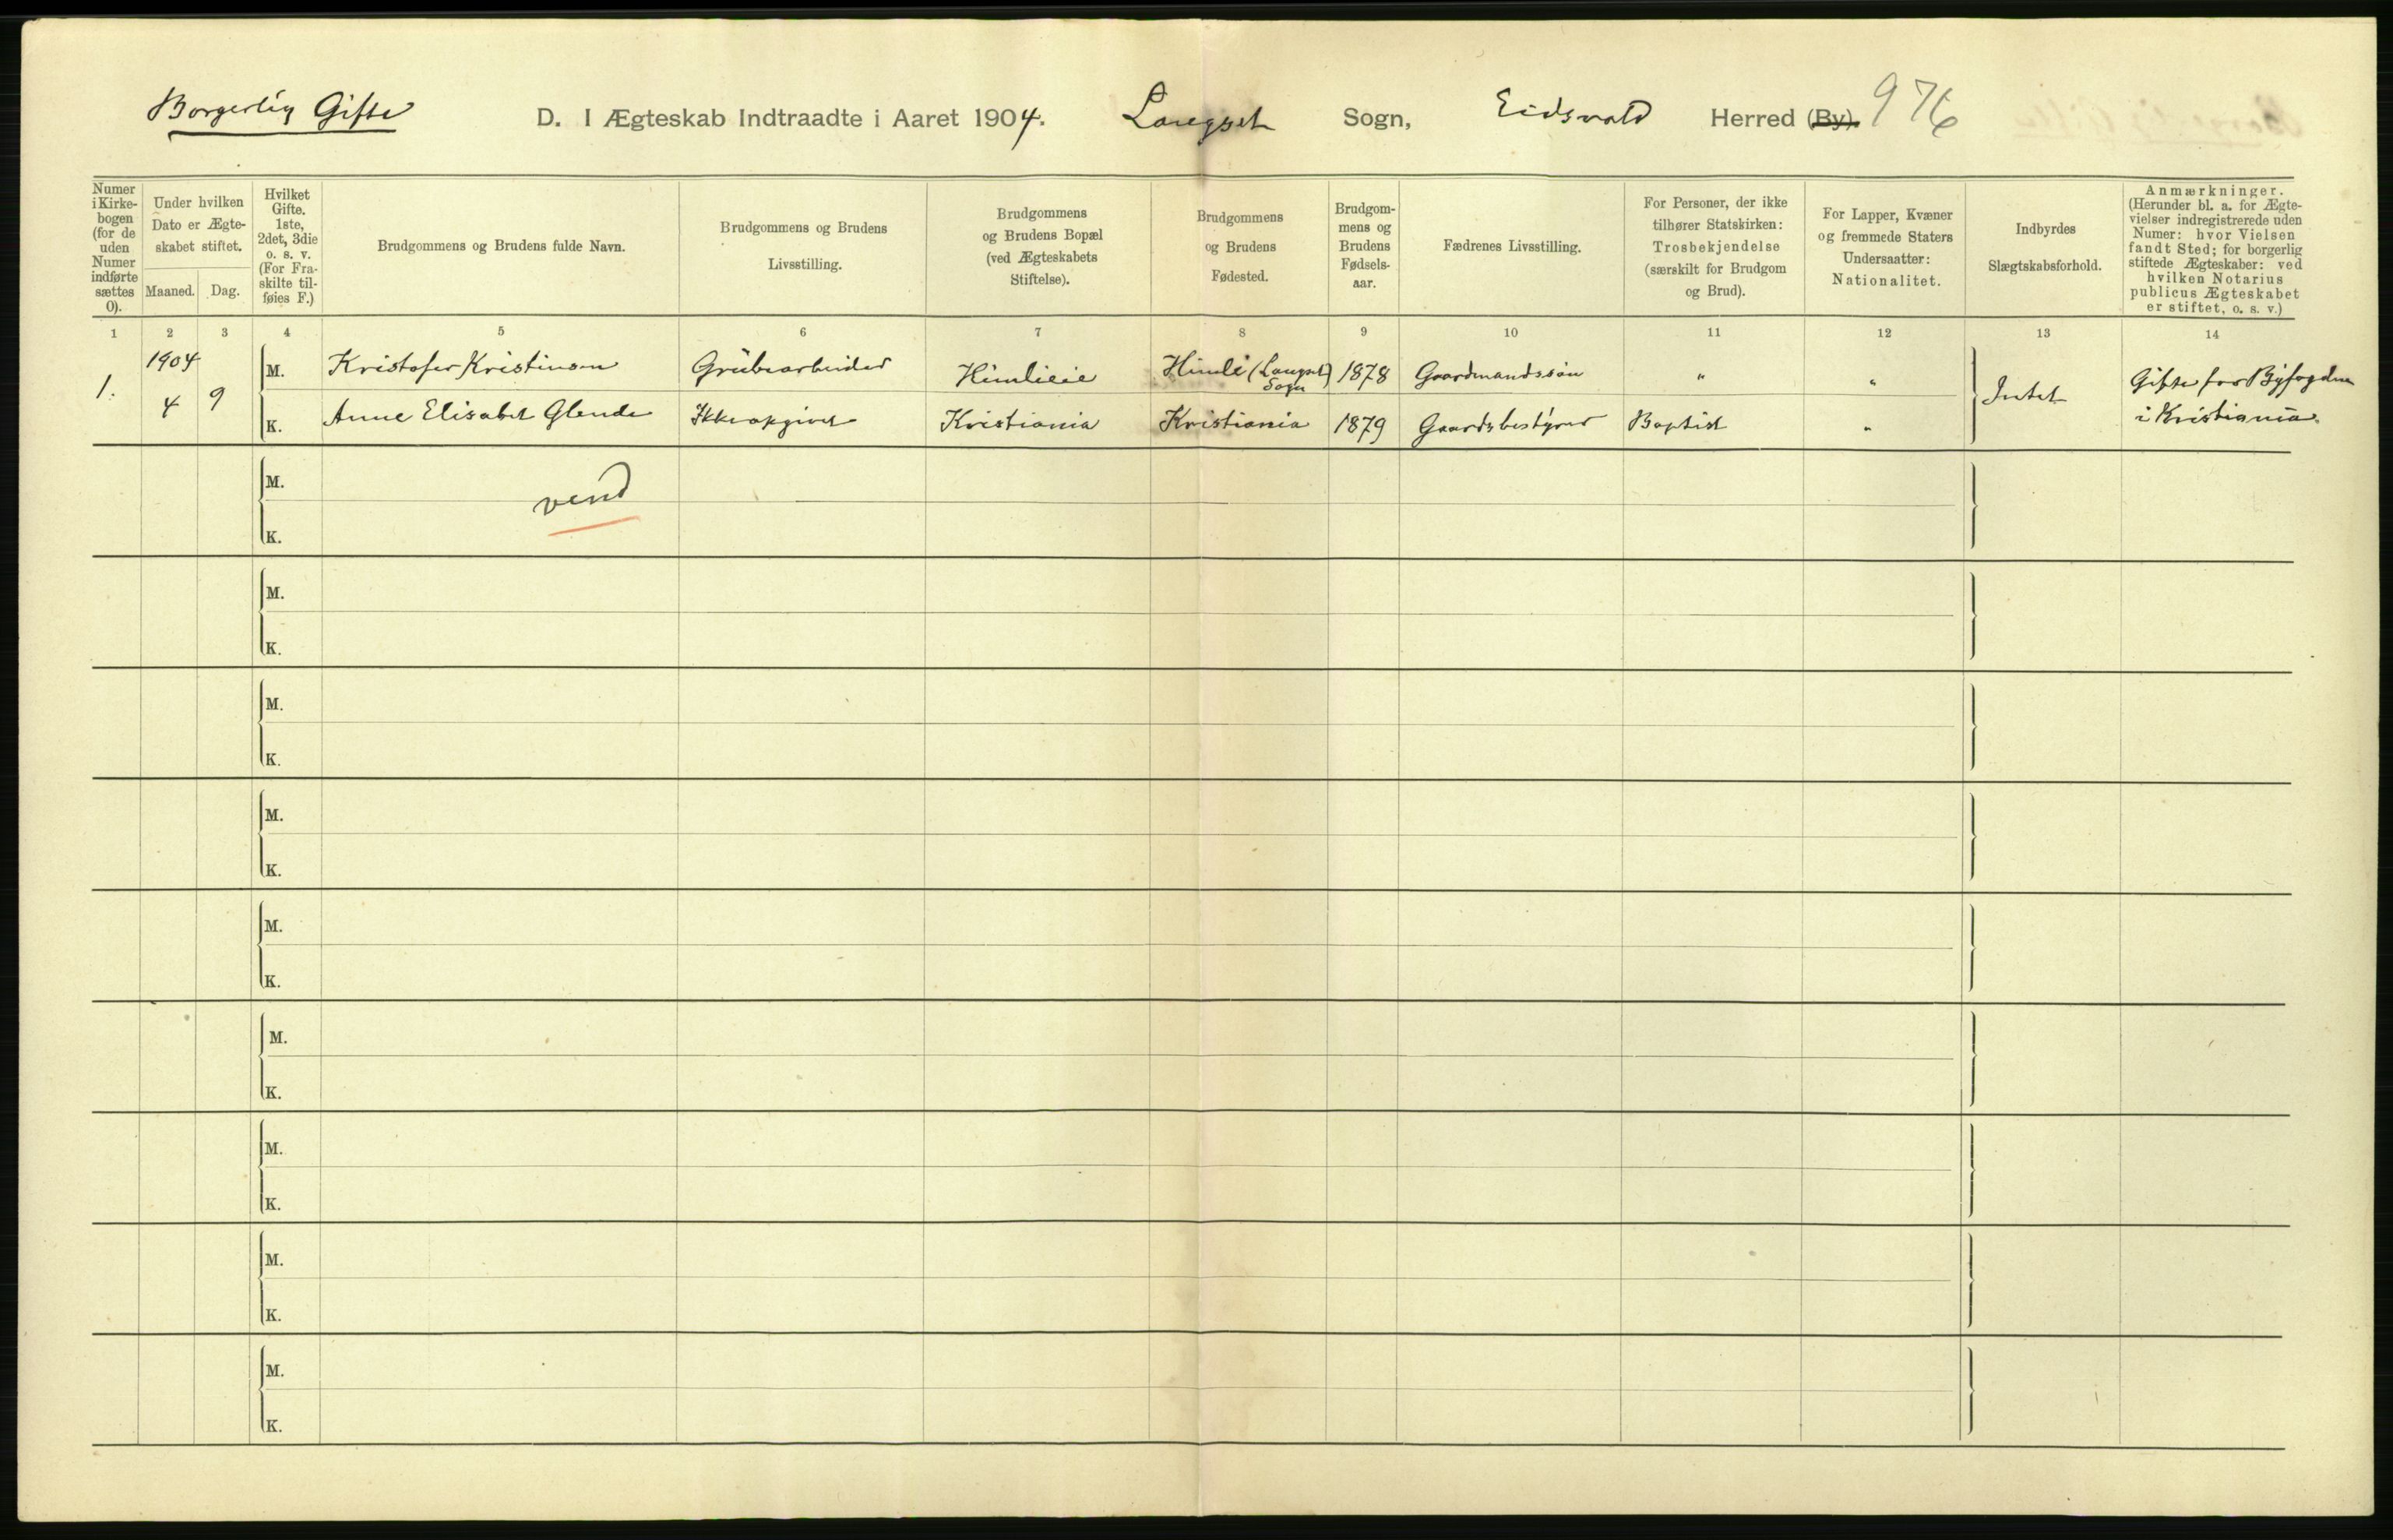 Borgerlig Gifte D. I Ægteskab Indtraadte i Aaret 1904. Langset Sogn, Eidsvold Herred (By). 976
Numer i Kirke-bogen (for de uden Numer indførte sættes 0).
Under hvilken Dato er Ægte-skabet stiftet.
Maaned. Dag.
Hvilket Gifte. 1ste, 2det, 3die o. s. v. (For Fra-skilte til-føies F.)
Brudgommens og Brudens fulde Navn.
Brudgommens og Brudens Livsstilling.
Brudgommens og Brudens Bopæl (ved Ægteskabets Stiftelse).
Brudgommens og Brudens Fødested.
Brudgom-mens og Brudens Fødsels-aar.
Fædrenes Livsstilling.
For Personer, der ikke tilhører Statskirken: Trosbekjendelse (særskilt for Brudgom og Brud).
For Lapper, Kvæner og fremmede Staters Undersaatter: Nationalitet.
Indbyrdes Slægtskabsforhold.
Anmærkninger. (Herunder bl. a. for Ægte-vielser indregistrerede uden Numer: hvor Vielsen fandt Sted; for borgerlig stiftede Ægteskaber: ved hvilken Notarius publicus Ægteskabet er stiftet, o. s. v.)
1 2 3 4 5 6 7 8 9 10 11 12 13 14
1904
1. 4 9 M. Kristofer Kristinsen Grübearbeider Himlieie Himle (Langset Sogn) 1878 Gaardmandssøn " " Intet Gifte for Byfogden
K. Anne Elisabet Glende Ikke opgivet Kristiania Kristiania 1879 Gaardsbestyrer Baptist " i Kristiania.
M.
vend
K.
M.
K.
M.
K.
M.
K.
M.
K.
M.
K.
M.
K.
M.
K.
M.
K.